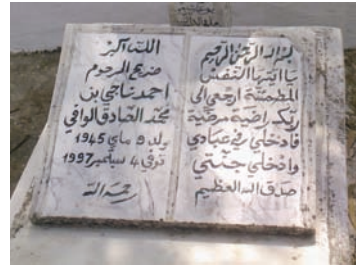 بسم الله الرحمن الرحيم
يا ايتها النفس
المطمئنة ارجعي الى
ربك راضية مرضية
فادخلي في عبادي
وادخلي جنتي
صدق الله العظيم
الله أكبر
ضريح المرحوم
احمد ناجي بن
محمد الصادق الوافي
ولد 9 ماي 1945
توفي 4 سبتمبر 1997
رحمه الله